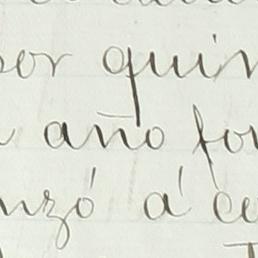 por quin
año for
nzó á ce